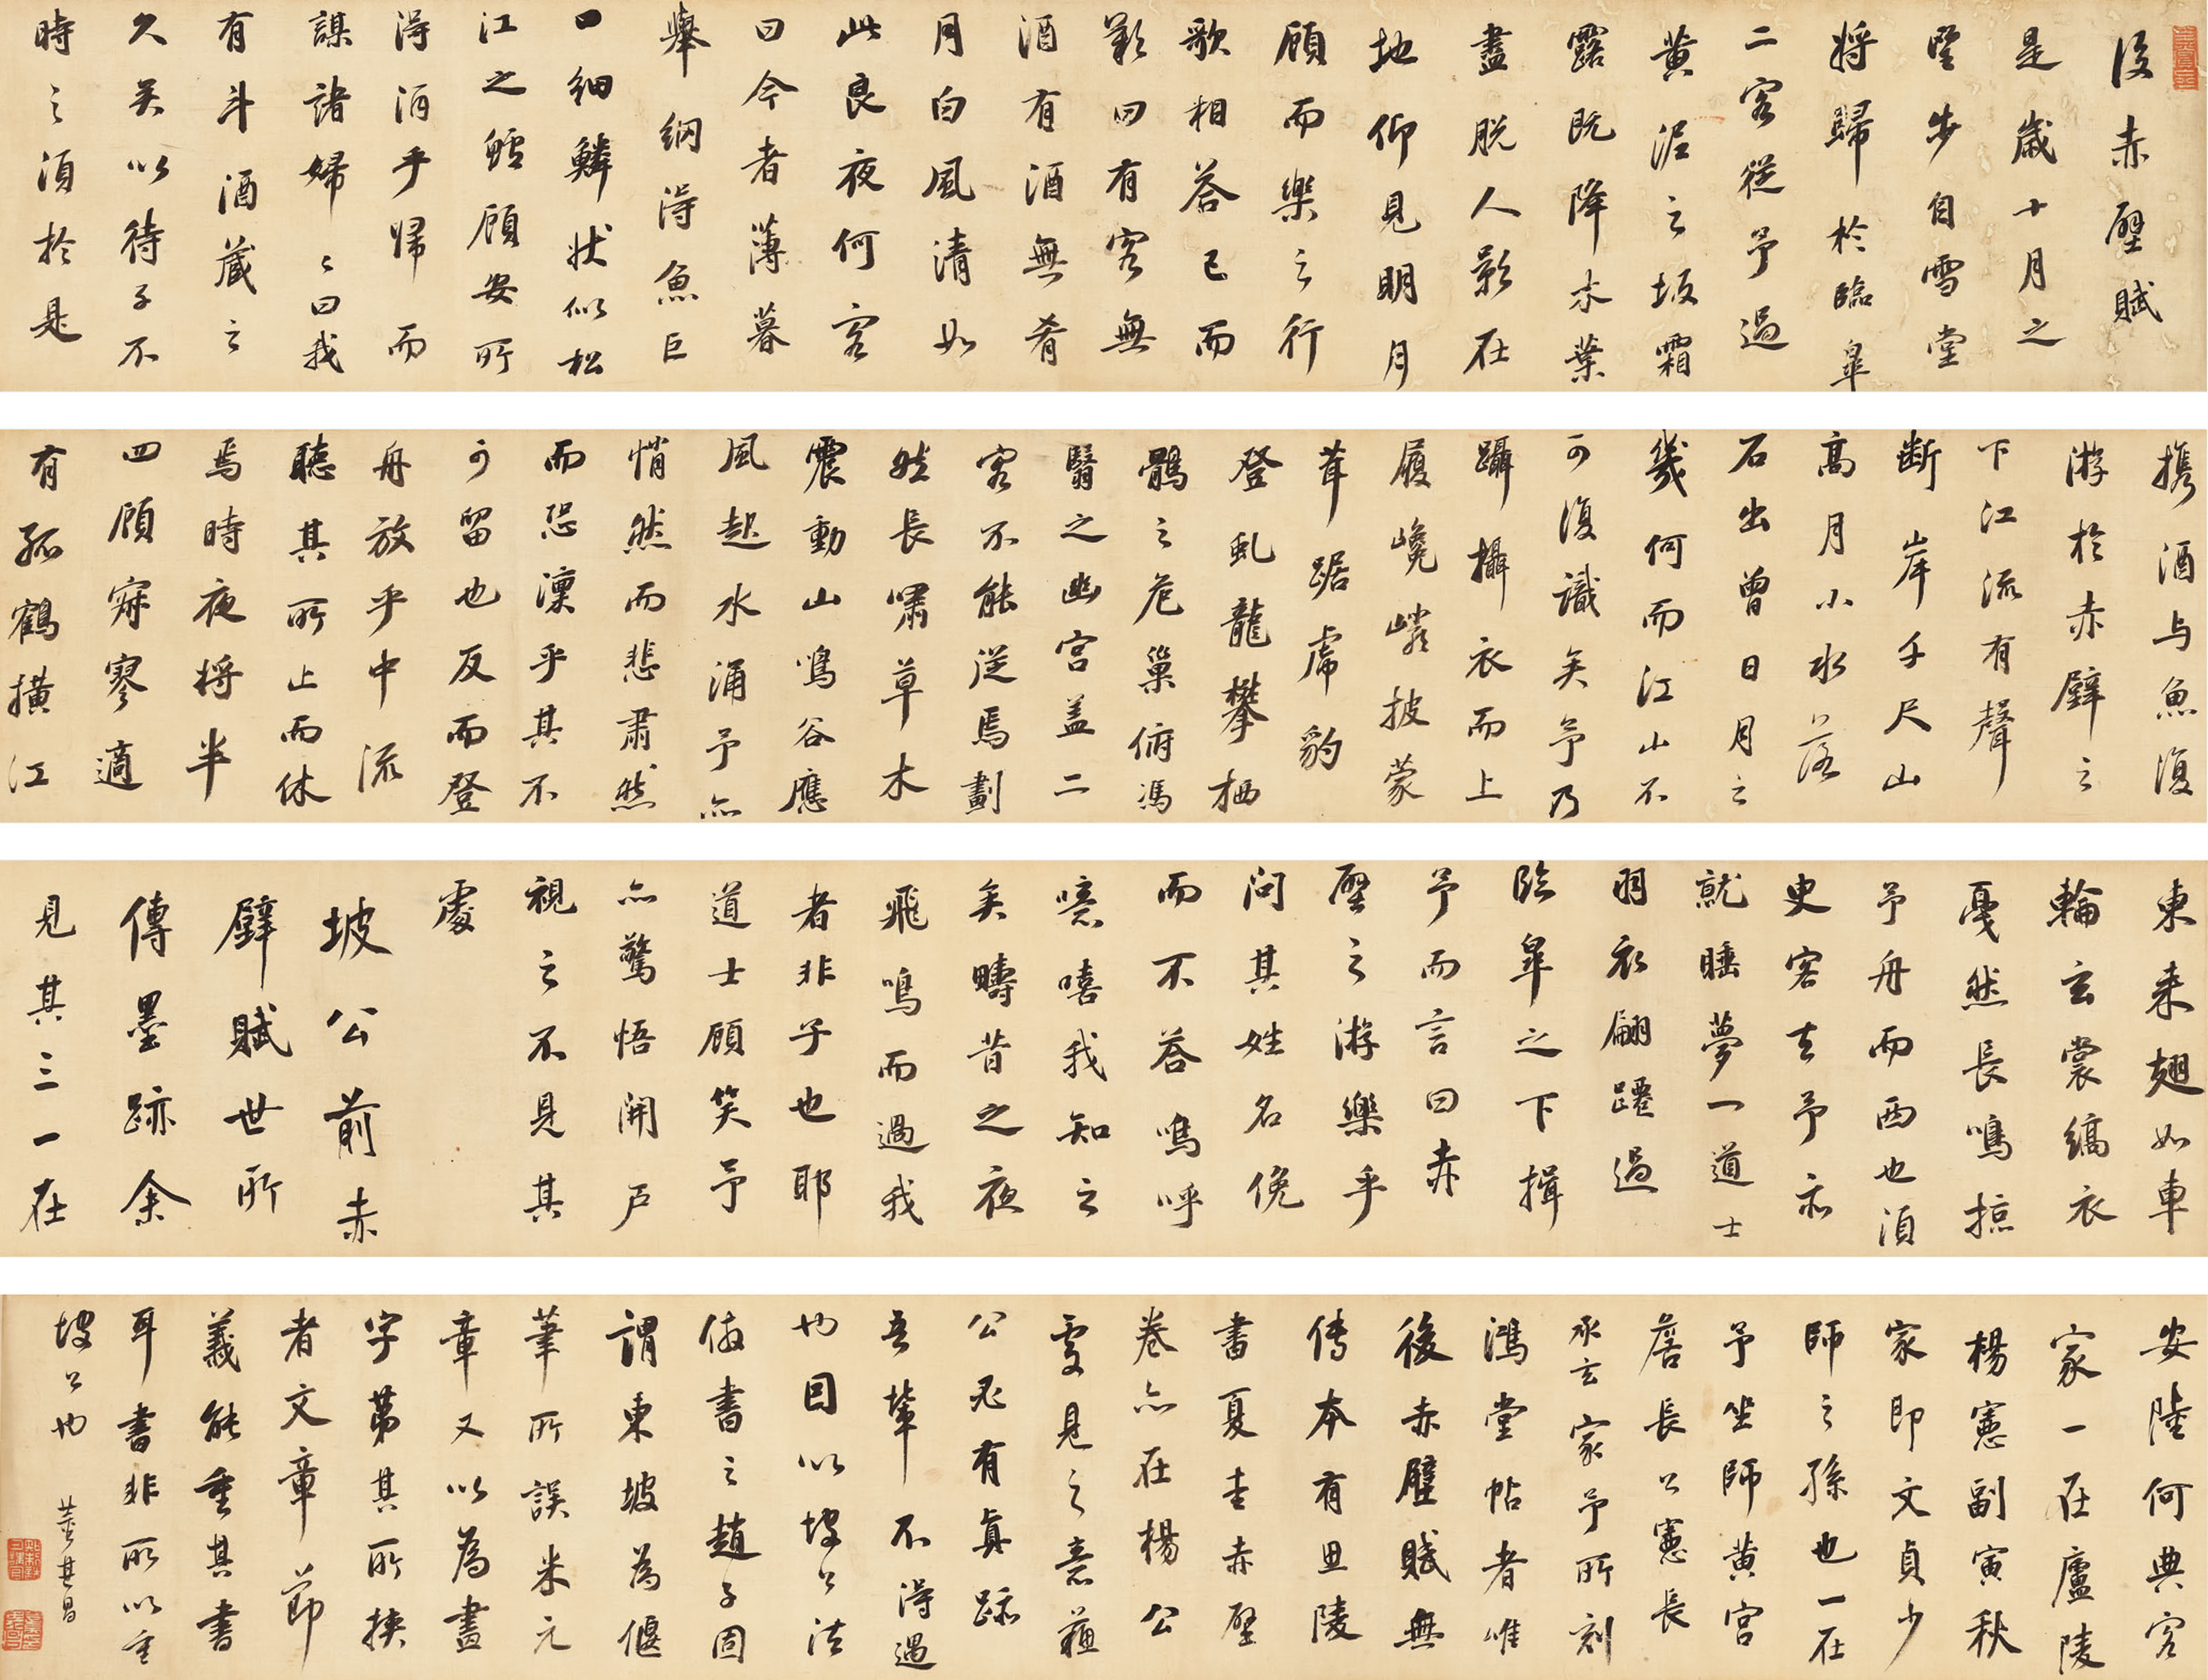 後赤壁賦
是歲十月之
望步自雪堂
將歸於臨皐
二客從予過
黃泥之坂霜
露既降木葉
盡脫人影在
地仰見明月
顧而樂之行
歌相答已而
歎曰有客無
酒有酒無肴
月白風清如
此良夜何客
曰今者薄暮
舉網得魚巨
口細鱗狀似松
江之鱸顧安所
得酒乎歸而
謀諸婦〻曰我
有斗酒藏之
久矣以待子不
時之須於是
攜酒与魚復
游於赤壁之
下江流有聲
斷岸千尺山
高月小水落
石出曾日月之
幾何而江山不
可復識矣予乃
躡攝衣而上
履巉巖披蒙
茸踞虎豹
登虬龍攀栖
鶻之危巢俯馮
翳之幽宮盖二
客不能從焉劃
然長嘯草木
震動山鳴谷應
風起水涌予亦
悄然而悲肅然
而恐凜乎其不
可留也反而登
舟放乎中流
聽其所止而休
焉時夜將半
四顧寂寥適
有孤鶴橫江
東來翅如車
輪玄裳縞衣
戛然長鳴掠
予舟而西也須
臾客去予亦
就睡夢一道士
羽衣翩躚過
臨皐之下揖
予而言曰赤
壁之游樂乎
問其姓名俛
而不答嗚呼
噫嘻我知之
矣疇昔之夜
飛鳴而過我
者非子也耶
道士顧笑予
亦驚悟開戶
視之不見其
處
坡公前赤
壁賦世所
傳墨跡余
見其三一在
安陸何典客
家一在廬陵
楊憲副寅秋
家即文貞少
師之孫也一在
予坐師黃宮
詹長公憲長
承玄家予所刻
鴻堂帖者唯
後赤壁賦無
傳本有毘陵
書夏圭赤壁
卷亦在楊公
處見之意蘓
公不有真跡
吾輩不得過
也因以坡公法
倣書之趙子固
謂東坡為偃
筆所誤米元
章又以為畫
字第其所挾
者文章節
義能重其書
耳書非所以重
坡公也 董其昌